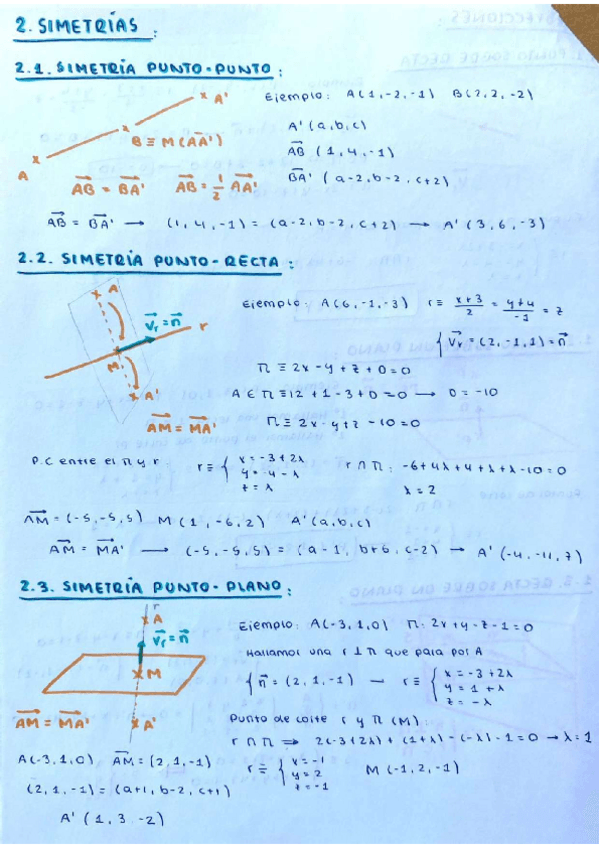 2. SIMETRÍAS:
2.1. SIMETRÍA PUNTO-PUNTO:
A'
B ≡ M(AA')
A
AB = BA' AB = 1/2 AA'
Ejemplo: A(1,-2,-1) B(2,2,-2)
A'(a,b,c)
AB (1,4,-1)
BA' (a-2,b-2,c+2)
AB = BA' → (1,4,-1) = (a-2,b-2,c+2) → A'(3,6,-3)
2.2. SIMETRÍA PUNTO-RECTA:
A
Vr = n
r
M
A'
AM = MA'
Ejemplo: A(6,-1,-3) r ≡ x+3/2 = y+4/-1 = z
{Vr = (2,-1,1) = n
π ≡ 2x-y+z+D=0
A ∈ π ≡ 12+1-3+D=0 → D=-10
π ≡ 2x-y+z-10=0
P.C entre el π y r: r ≡ { x=-3+2λ
y=-4-λ
z=λ
r ∩ π: -6+4λ+4+λ+λ-10=0
λ=2
AM = (-5,-5,5) M(1,-6,2) A'(a,b,c)
AM = MA' → (-5,-5,5) = (a-1,b+6,c-2) → A'(-4,-11,7)
2.3. SIMETRÍA PUNTO-PLANO:
r
A
Vr = n
M
AM = MA'
A'
Ejemplo: A(-3,1,0) π: 2x+y-z-1=0
Hallamos una r ⊥ π que pase por A
{n = (2,1,-1) → r ≡ { x=-3+2λ
y=1+λ
z=-λ
Punto de corte r y π (M):
r ∩ π ⇒ 2(-3+2λ)+(1+λ)-(-λ)-1=0 → λ=1
r ≡ { x=-1
y=2
z=-1
M(-1,2,-1)
A(-3,1,0) AM = (2,1,-1)
(2,1,-1) = (a+1,b-2,c+1)
A'(1,3,-2)